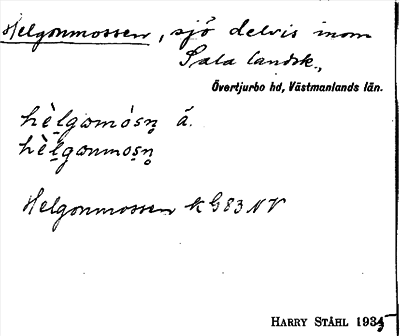 Helgonmossen, sjö delvis inom
Sala landsk.,
Övertjurbo hd, Västmanlands län.
hèl̥gωmósn̥ å.
hèl̥gωnmosn̥
Helgonmossen k G83 NV
HARRY STÅHL 1935